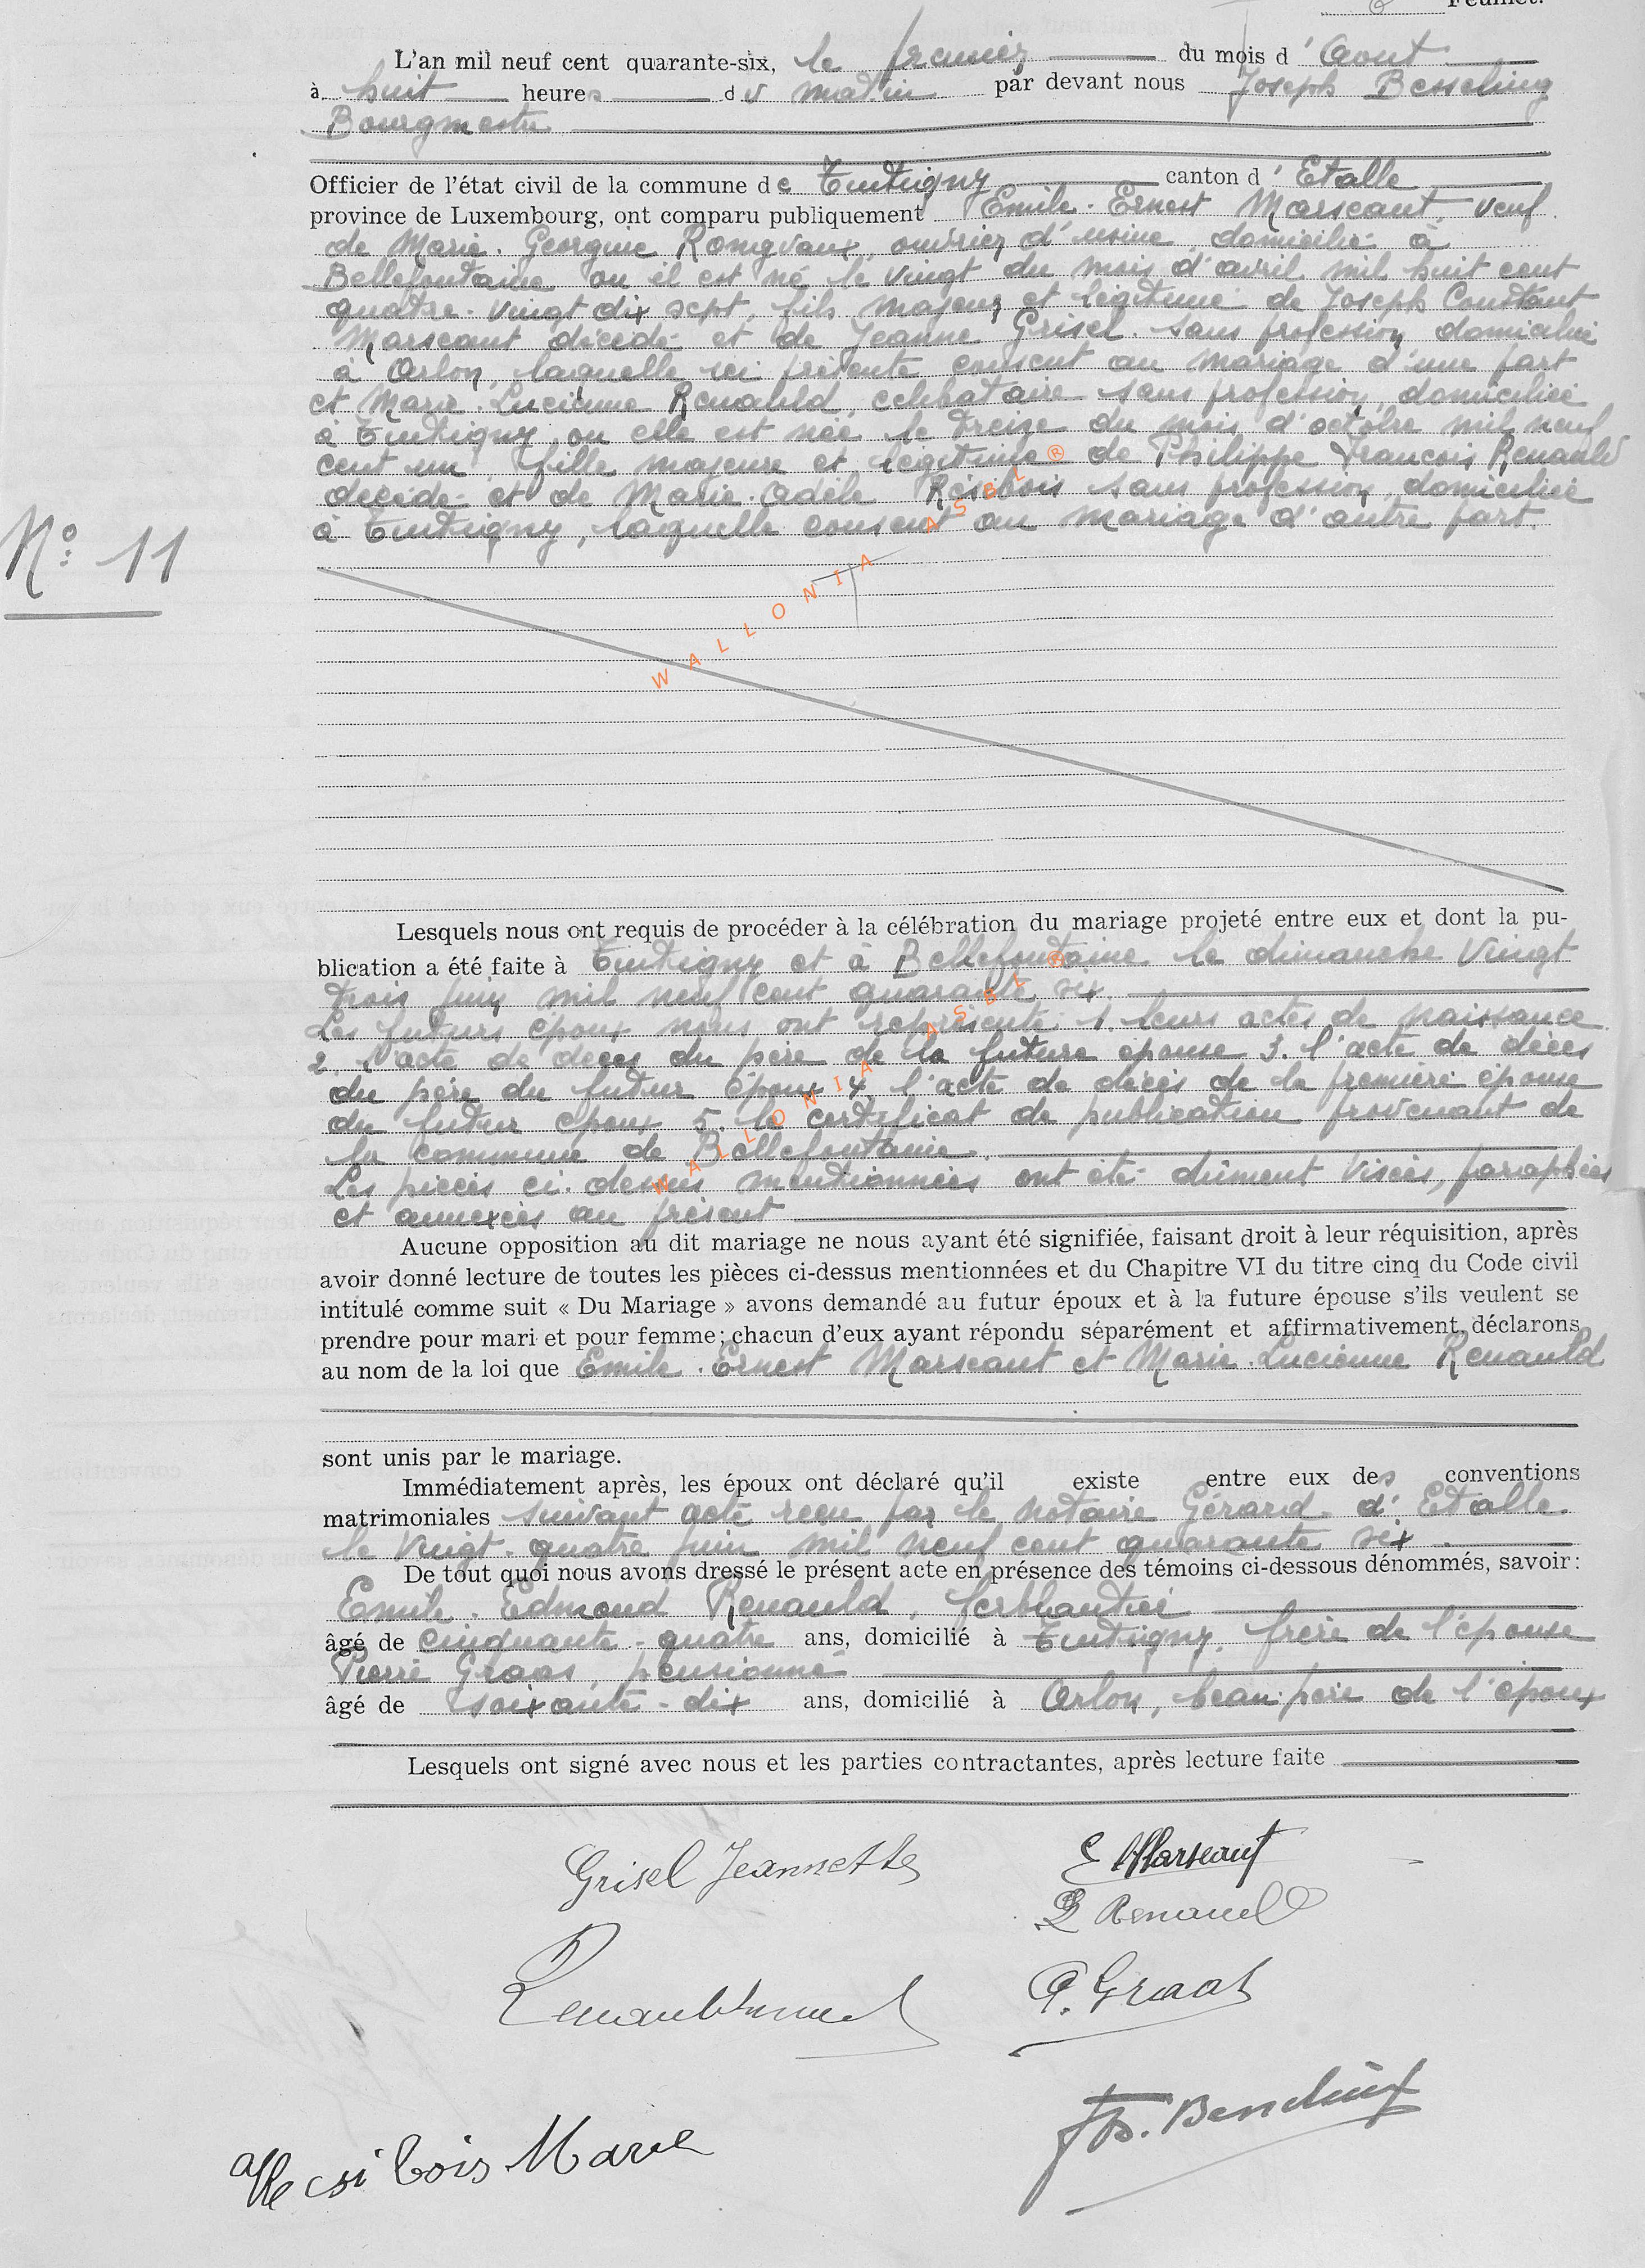 Feuillet.
L'an mil neuf cent quarante-six, le premier du mois d'Aout
à huit heures du matin par devant nous Joseph Besseling
Bourgmestre
Officier de l'état civil de la commune de Tintigny canton d'Etalle
province de Luxembourg, ont comparu publiquement Emile-Ernest Marseaut, veuf
de Marie-Georgine Rongvaux, ouvrier d'usine, domicilié à
Bellefontaine ou il est né le vingt du mois d'avril mil huit cent
quatre-vingt dix sept, fils majeur et légitime de Joseph Constant
Marseaut décédé et de Jeanne Grisel sans profession, domiciliée
à Arlon, laquelle ici présente consent au mariage d'une part
et Marie-Lucienne Renauld, célibataire sans profession, domiciliée
à Tintigny, ou elle est née le treize du mois d'octobre mil neuf
cent un fille majeure et légitime de Philippe François Renauld
décédé et de Marie-Adèle Résibois sans profession, domiciliée
à Tintigny, laquelle consent au mariage d'autre part.
Nº 11
WALLONIA ASBL ®
Lesquels nous ont requis de procéder à la célébration du mariage projeté entre eux et dont la pu-
blication a été faite à Tintigny et à Bellefontaine le dimanche vingt
trois juin mil neuf cent quarante six
Les futurs époux nous ont représenté 1. leurs actes de naissance
2. l'acte de décès du père de la future épouse 3. l'acte de décès
du père du futur époux 4 l'acte de décès de la première épouse
du futur époux 5. le certificat de publication provenant de
la commune de Bellefontaine.
Les pièces ci-dessus mentionnées ont été dûment visées, paraphées
et annexées au présent
WALLONIA ASBL ®
Aucune opposition au dit mariage ne nous ayant été signifiée, faisant droit à leur réquisition, après
avoir donné lecture de toutes les pièces ci-dessus mentionnées et du Chapitre VI du titre cinq du Code civil
intitulé comme suit « Du Mariage » avons demandé au futur époux et à la future épouse s'ils veulent se
prendre pour mari et pour femme; chacun d'eux ayant répondu séparément et affirmativement, déclarons
au nom de la loi que Emile-Ernest Marseaut et Marie-Lucienne Renauld
sont unis par le mariage.
Immédiatement après, les époux ont déclaré qu'il existe entre eux des conventions
matrimoniales suivant acte reçu par le notaire Gérard d'Etalle
le vingt-quatre juin mil neuf cent quarante six.
De tout quoi nous avons dressé le présent acte en présence des témoins ci-dessous dénommés, savoir:
Emile-Edmond Renauld, ferblantier
âgé de cinquante-quatre ans, domicilié à Tintigny, frère de l'épouse
Pierre Graas, pensionné
âgé de soixante-dix ans, domicilié à Arlon, beau-père de l'époux
Lesquels ont signé avec nous et les parties contractantes, après lecture faite
Grisel Jeannette
E Marseaut
Renauld
P. Graas
Resibois Marie